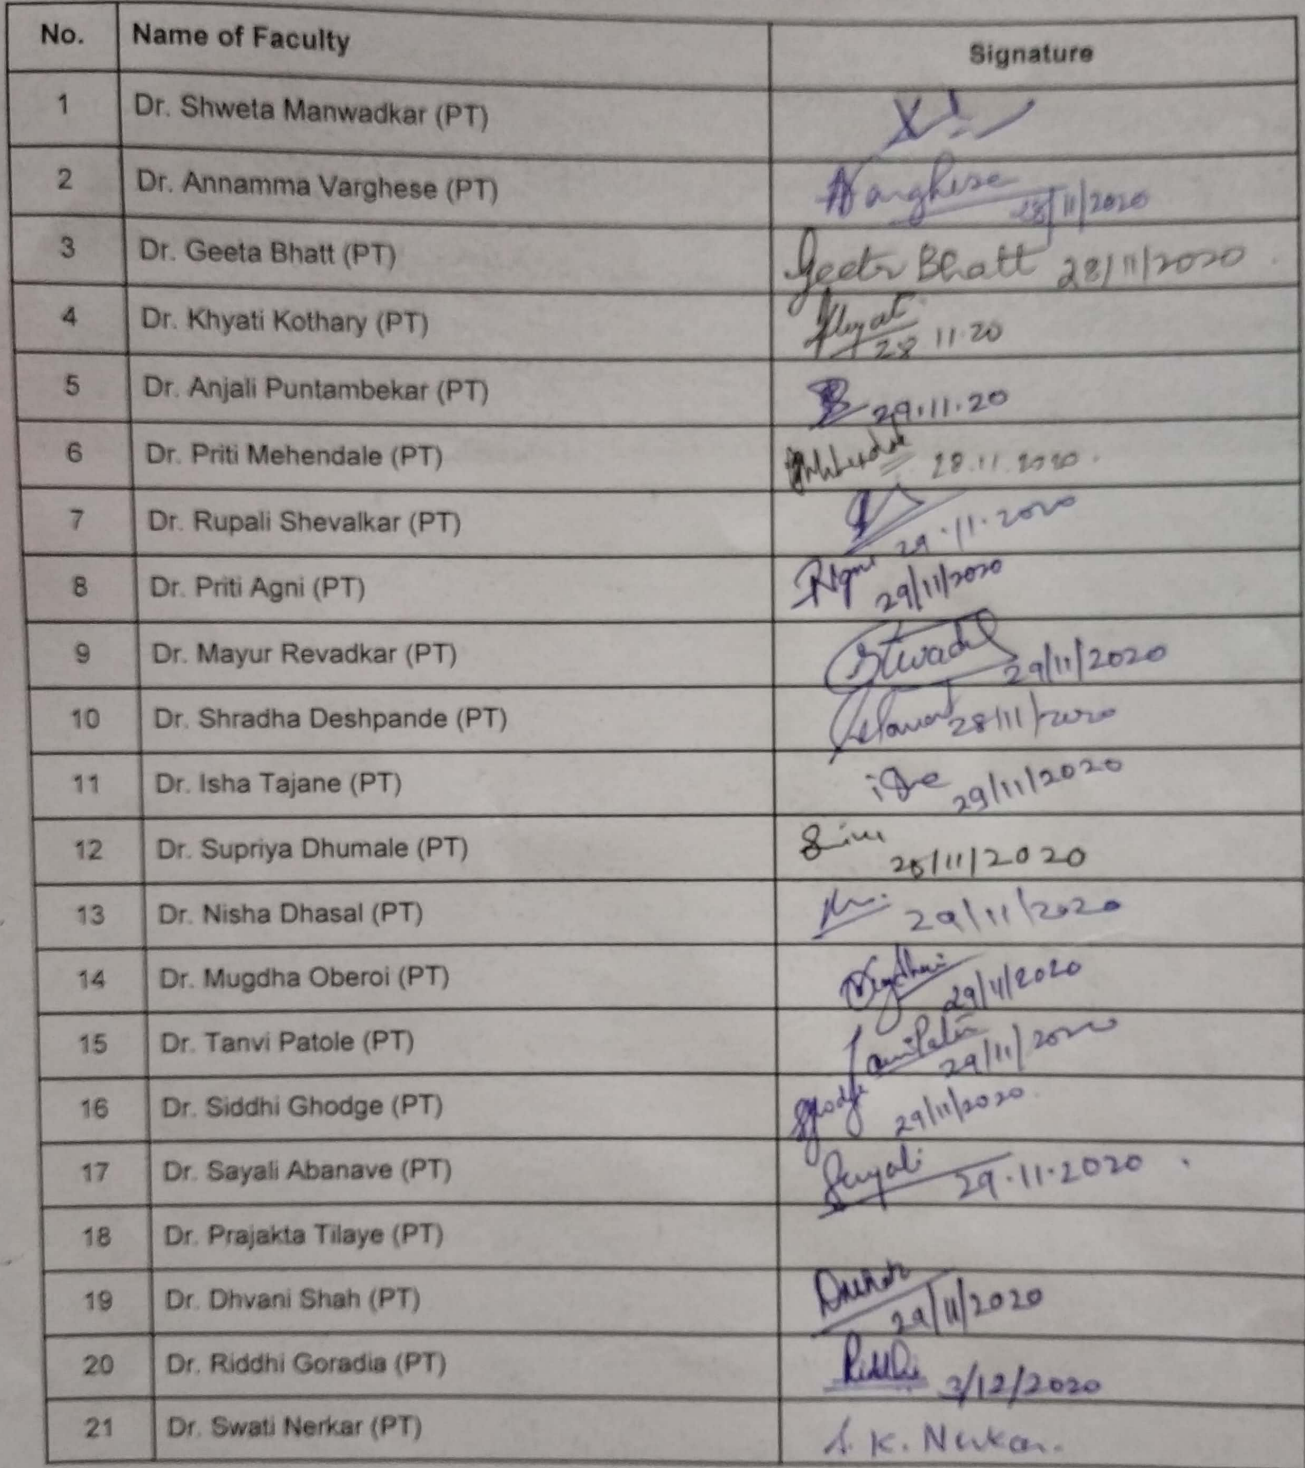 No. Name of Faculty Signature
1 Dr. Shweta Manwadkar (PT)
2 Dr. Annamma Varghese (PT) Varghese
28/11/2020
3 Dr. Geeta Bhatt (PT) Geeta Bhatt 28/11/2020
4 Dr. Khyati Kothary (PT) Khyati
28.11.20
5 Dr. Anjali Puntambekar (PT) 29.11.20
6 Dr. Priti Mehendale (PT) 28.11.2020.
7 Dr. Rupali Shevalkar (PT) 29.11.2020
8 Dr. Priti Agni (PT) 29/11/2020
9 Dr. Mayur Revadkar (PT) 29/11/2020
10 Dr. Shradha Deshpande (PT) 28/11/2020
11 Dr. Isha Tajane (PT) 29/11/2020
12 Dr. Supriya Dhumale (PT) /11/2020
13 Dr. Nisha Dhasal (PT) 29/11/2020
14 Dr. Mugdha Oberoi (PT) 29/11/2020
15 Dr. Tanvi Patole (PT) 29/11/2020
16 Dr. Siddhi Ghodge (PT) Ghodge
29/11/2020.
17 Dr. Sayali Abanave (PT) Sayali 29.11.2020
18 Dr. Prajakta Tilaye (PT)
19 Dr. Dhvani Shah (PT)
29/11/2020
20 Dr. Riddhi Goradia (PT) Riddhi /12/2020
21 Dr. Swati Nerkar (PT) S. K. Nerkar.